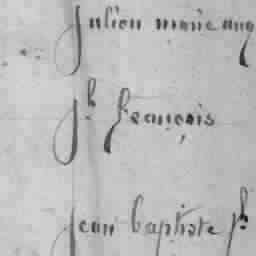 julien marie aug
jh francois
jean baptiste jh